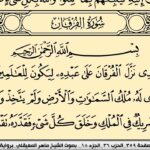 سُورَةُ الفُرْقَانِ
بِسْمِ اللَّهِ الرَّحْمَٰنِ الرَّحِيمِ
نَزَّلَ الْفُرْقَانَ عَلَىٰ عَبْدِهِ لِيَكُونَ لِلْعَالَمِينَ
لَهُ مُلْكُ السَّمَاوَاتِ وَالْأَرْضِ وَلَمْ يَتَّخِذْ
شَرِيكٌ فِي الْمُلْكِ وَخَلَقَ كُلَّ شَيْءٍ فَقَدَّرَهُ
صفحة ٣٥٩، الحزب ٣٦، الجزء ١٨، بصوت الشيخ ماهر المعيقلي، برواية